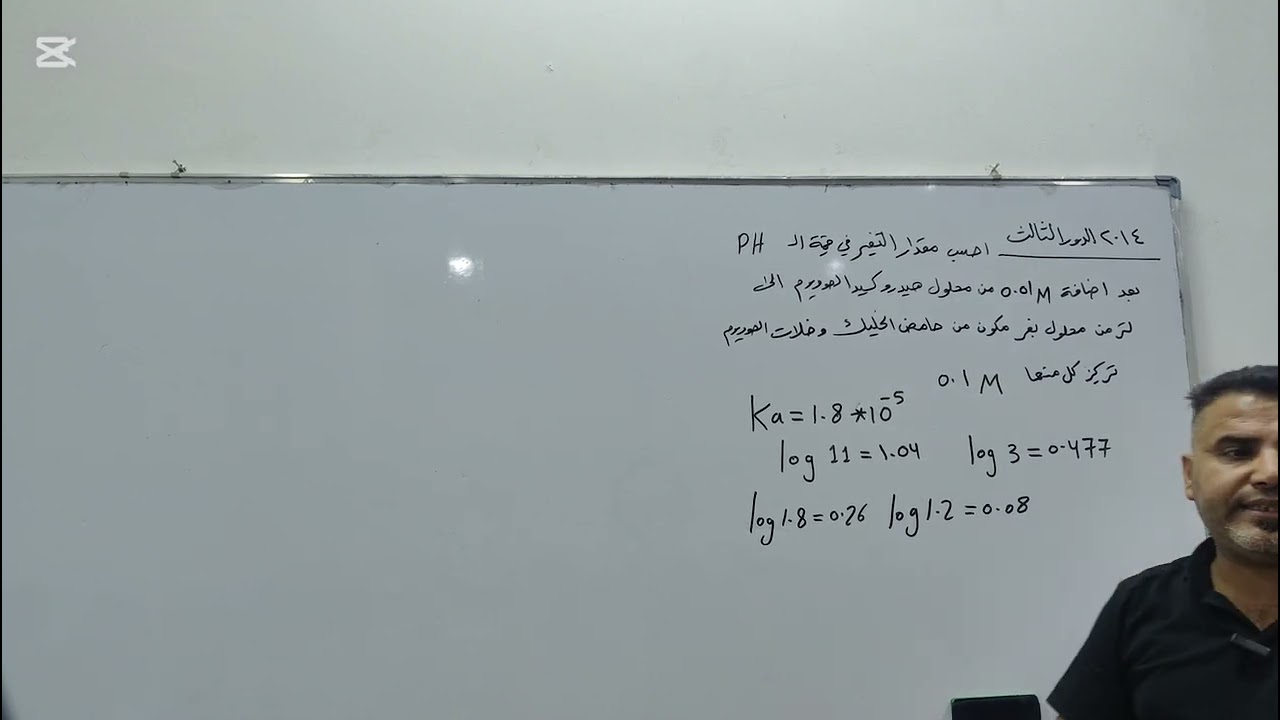 ٢٠١٤ الدور الثالث احسب مقدار التغير في قيمة الـ PH
بعد اضافة 0.01M من محلول هيدروكسيد الصوديوم الى
لتر من محلول بفر مكون من حامض الخليك وخلات الصوديوم
تركيز كل منهما 0.1 M
Ka = 1.8 *10⁻⁵
log 11 = 1.04 log 3 = 0.477
log 1.8 = 0.26 log 1.2 = 0.08